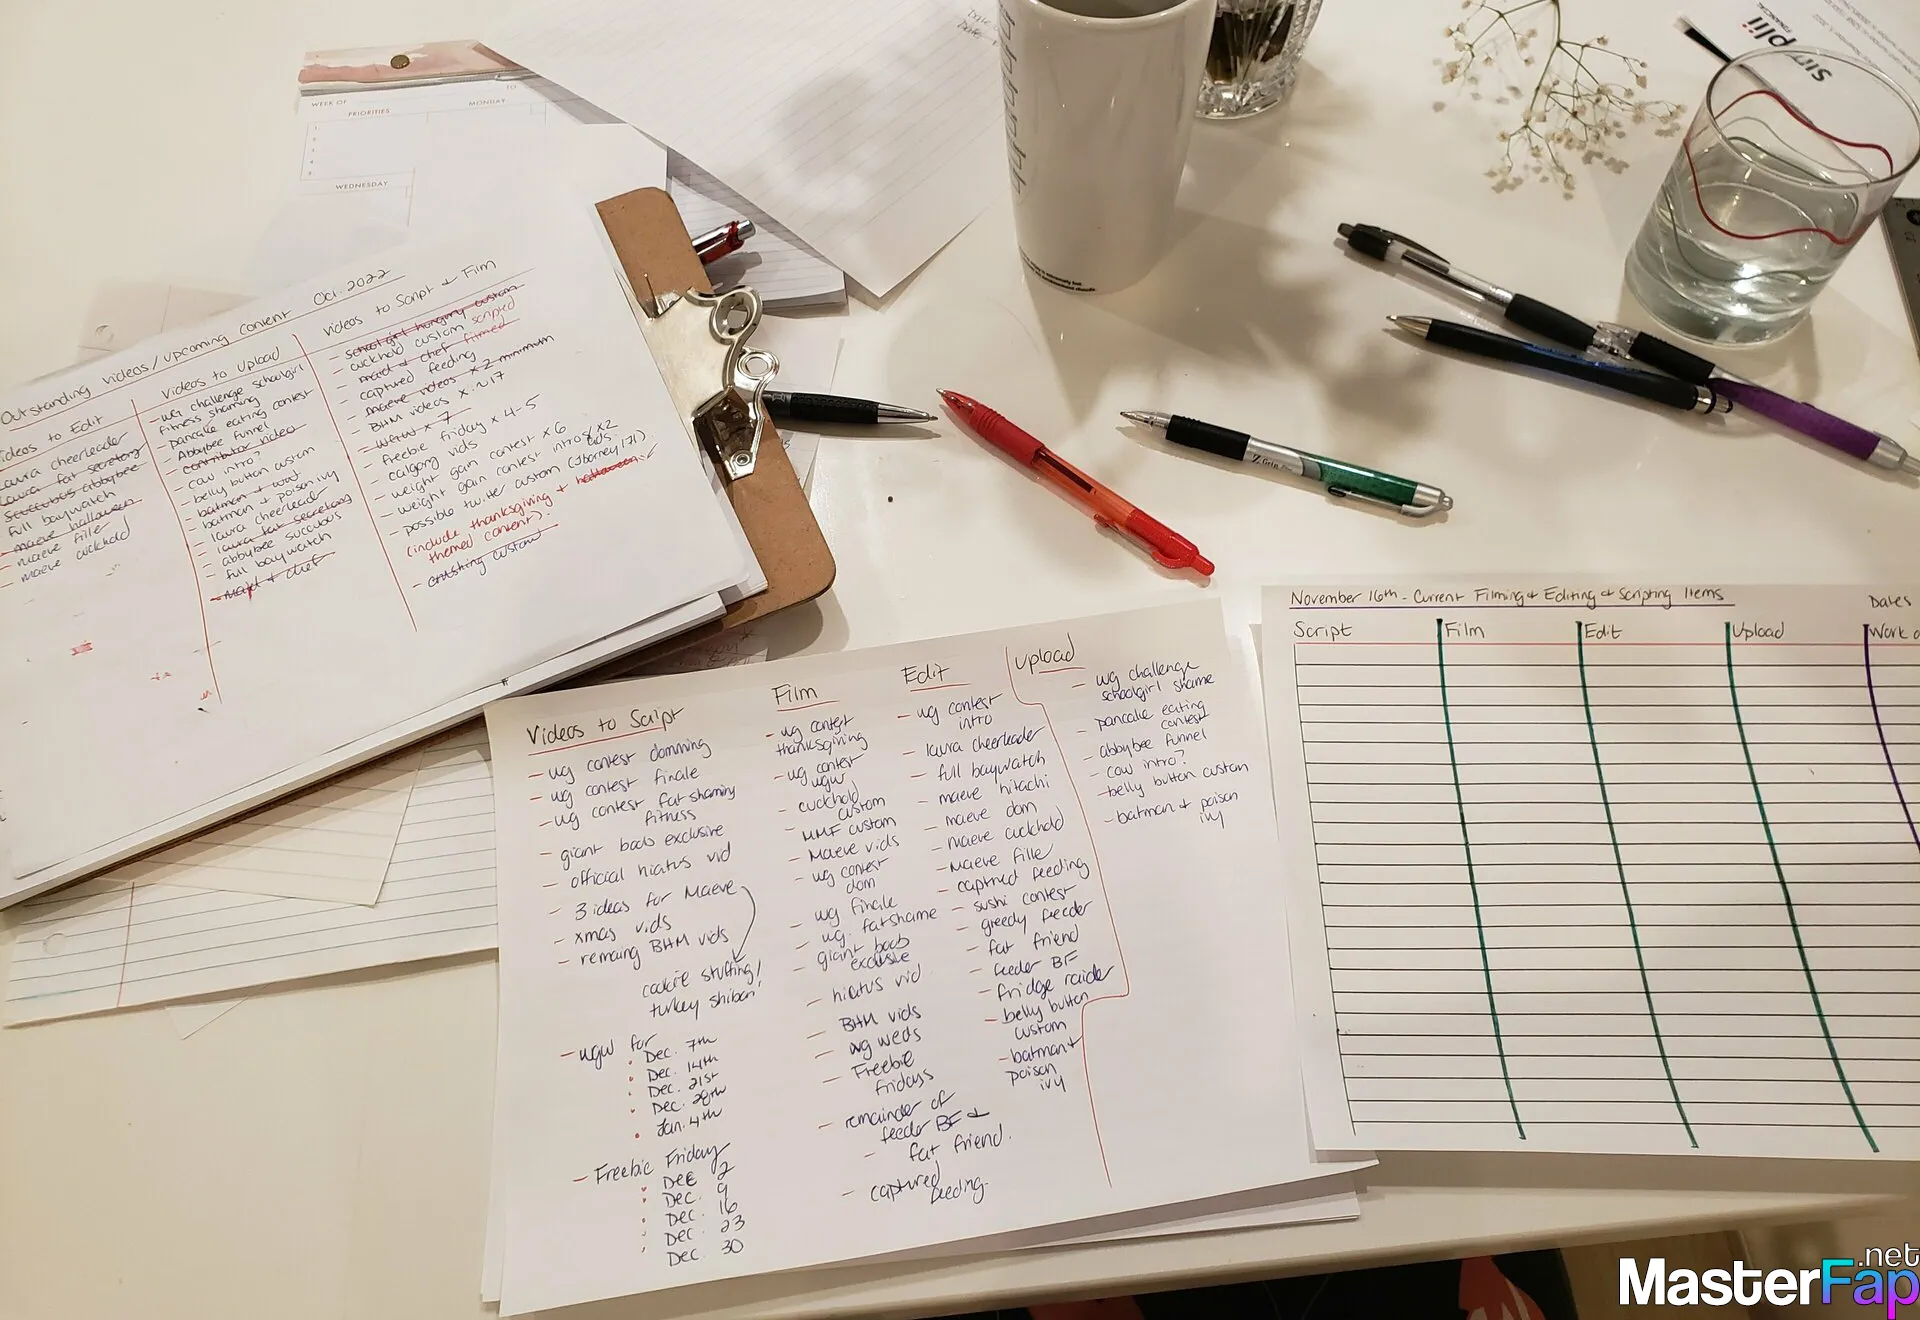 WEEK OF
TO
PRIORITIES
MONDAY
WEDNESDAY
Outstanding Videos/Upcoming Content Oct. 2022
Videos to Edit
laura cheerleader
laura fat secretary
succubus abbybee
full baywatch
- maeve halloween
- maeve fille
- maeve cuckhold
Videos to Upload
- wg challenge schoolgirl
fitness shaming
- pancake eating contest
- Abbybee funnel
- contributor video
- cow intro?
- belly button custom
- batman + wat
- batman + poison ivy
- laura cheerleader
- laura fat secretary
- abbybee succubus
- full baywatch
- Maid + chef
Videos to Script + Film
- school girl hungery custom
- cuckhold custom scripted
- maid + chef filmed
- captured feeding
- maeve videos x2 minimum
- BHM videos x ~17
- WGW x 7
- freebie friday x 4-5
- calgary vids
- weight gain contest x 6
- weight gain contest intros x2 vids
- possible twitter custom (Jbarney171)
(include thanksgiving + halloween
themed content).
- crushing custom
Videos to Script
- wg contest domming
- wg contest finale
- wg contest fat shaming
fitness
- giant boob exclusive
- official hiatus vid
- 3 ideas for Maeve
- xmas vids
- remaing BHM vids
cookie stuffing!
turkey shibari!
- wgw for
Dec. 7th
Dec. 14th
Dec. 21st
Dec. 28th
Jan. 4th
- Freebie Friday
Dec 2
Dec. 9
Dec. 16
Dec. 23
Dec. 30
Film
- wg contest
thanksgiving
- wg contest
wgw
- cuckhold
custom
- MMF custom
- Maeve vids
- wg contest
dom
wg finale
- wg. fatshame
- giant boob
exclusive
- hiatus vid
- BHM vids
- wg weds
- Freebie
fridays
- remainder of
feeder BF +
- fat friend.
- captured
feeding.
Edit
- wg contest
intro
- laura cheerleader
- full baywatch
- maeve hitachi
- maeve dom
- maeve cuckhold
- Maeve fille
- captured feeding
- sushi contest
- greedy feeder
- fat friend
- feeder BF
- fridge raider
- belly button
custom
- batman +
poison
ivy
Upload
- wg challenge
schoolgirl shame
- pancake eating
contest
- abbybee funnel
- cow intro?
- belly button custom
- batman + poison
ivy
November 16th - Current Filming + Editing + Scripting Items
Dates
Script
Film
Edit
Upload
Work o
MasterFap
.net